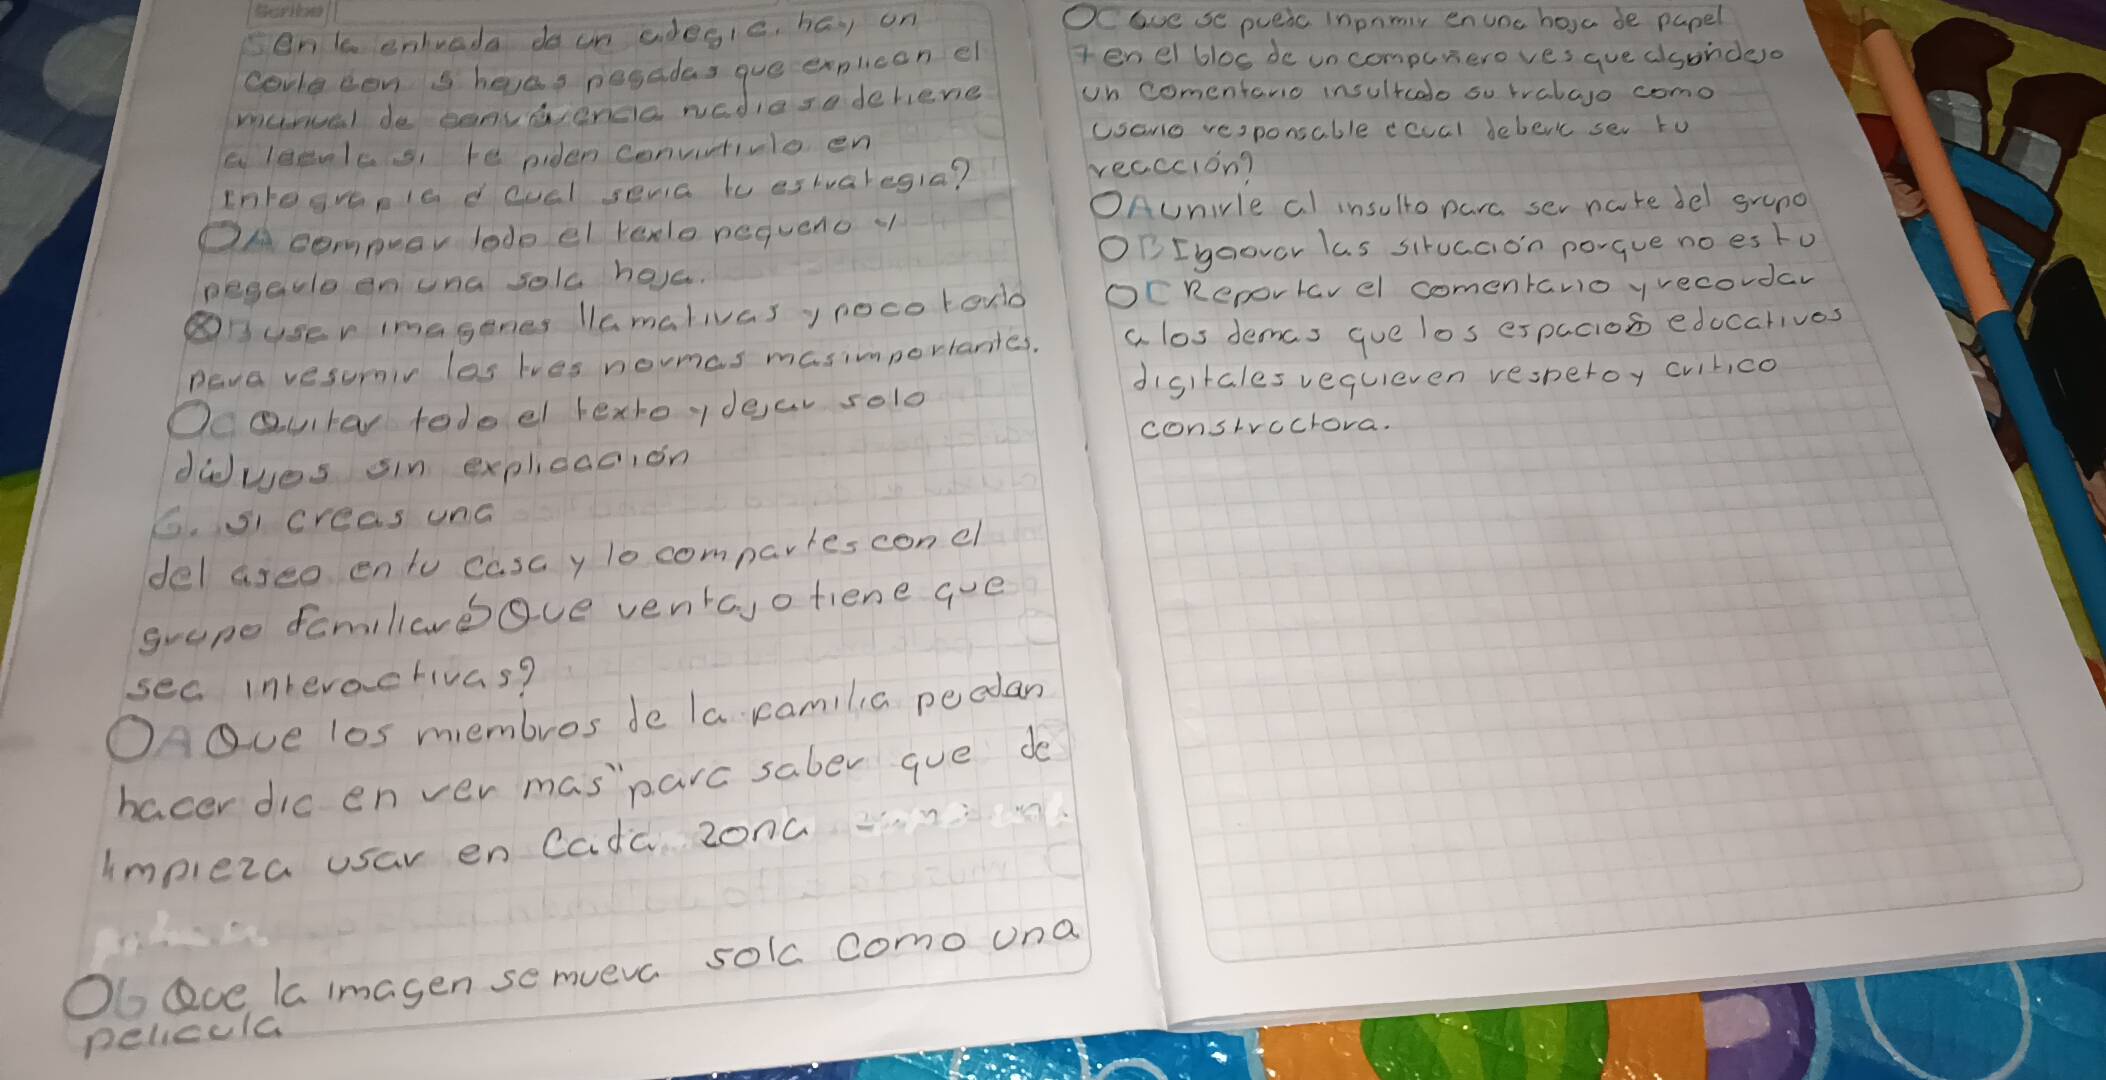 5 en la entrada de un colegio, hay un
corle con 5 hojas pegadas que explican el
manual de convivencia nadie se detiene
a leerlo si te piden convirtirlo en
intograpia d cual seria tu estrategia?
OA comprar todo el texto pequeno y
pegarlo en una sola hoja.
OB usar imagenes llamativas y poco texto
para resumir las tres normas mas importantes.
OC Quitar todo el texto y dejar solo
dibujos sin explicacion
6. si creas una
del aseo en tu casa y lo compartes con el
grupo familiar Que ventajo tiene que
sea interactivas?
OA Que los miembros de la familia puedan
hacer dic en ver mas" para saber que de
limpieza usar en cada zona
OB Que la imagen se mueva sola como una
pelicula
OC Que se pueda inpnmir en una hoja de papel
7 en el bloc de un compañero ves que alguin dejo
un comentario insultado su trabajo como
usario responsable ccual debera ser tu
reaccción?
OA unirle al insulto para ser parte del grupo
OB Ignorar las situación porque no es tu
OC Reportar el comentario y recordar
a los demas que los espacios educativos
digitales requieren respeto y critico
constructora.